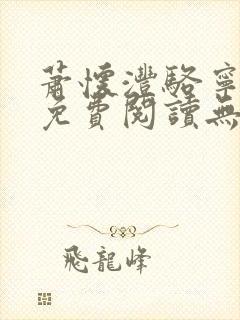 蕭懷灃駱寧
免費閱讀無
飛龍峰